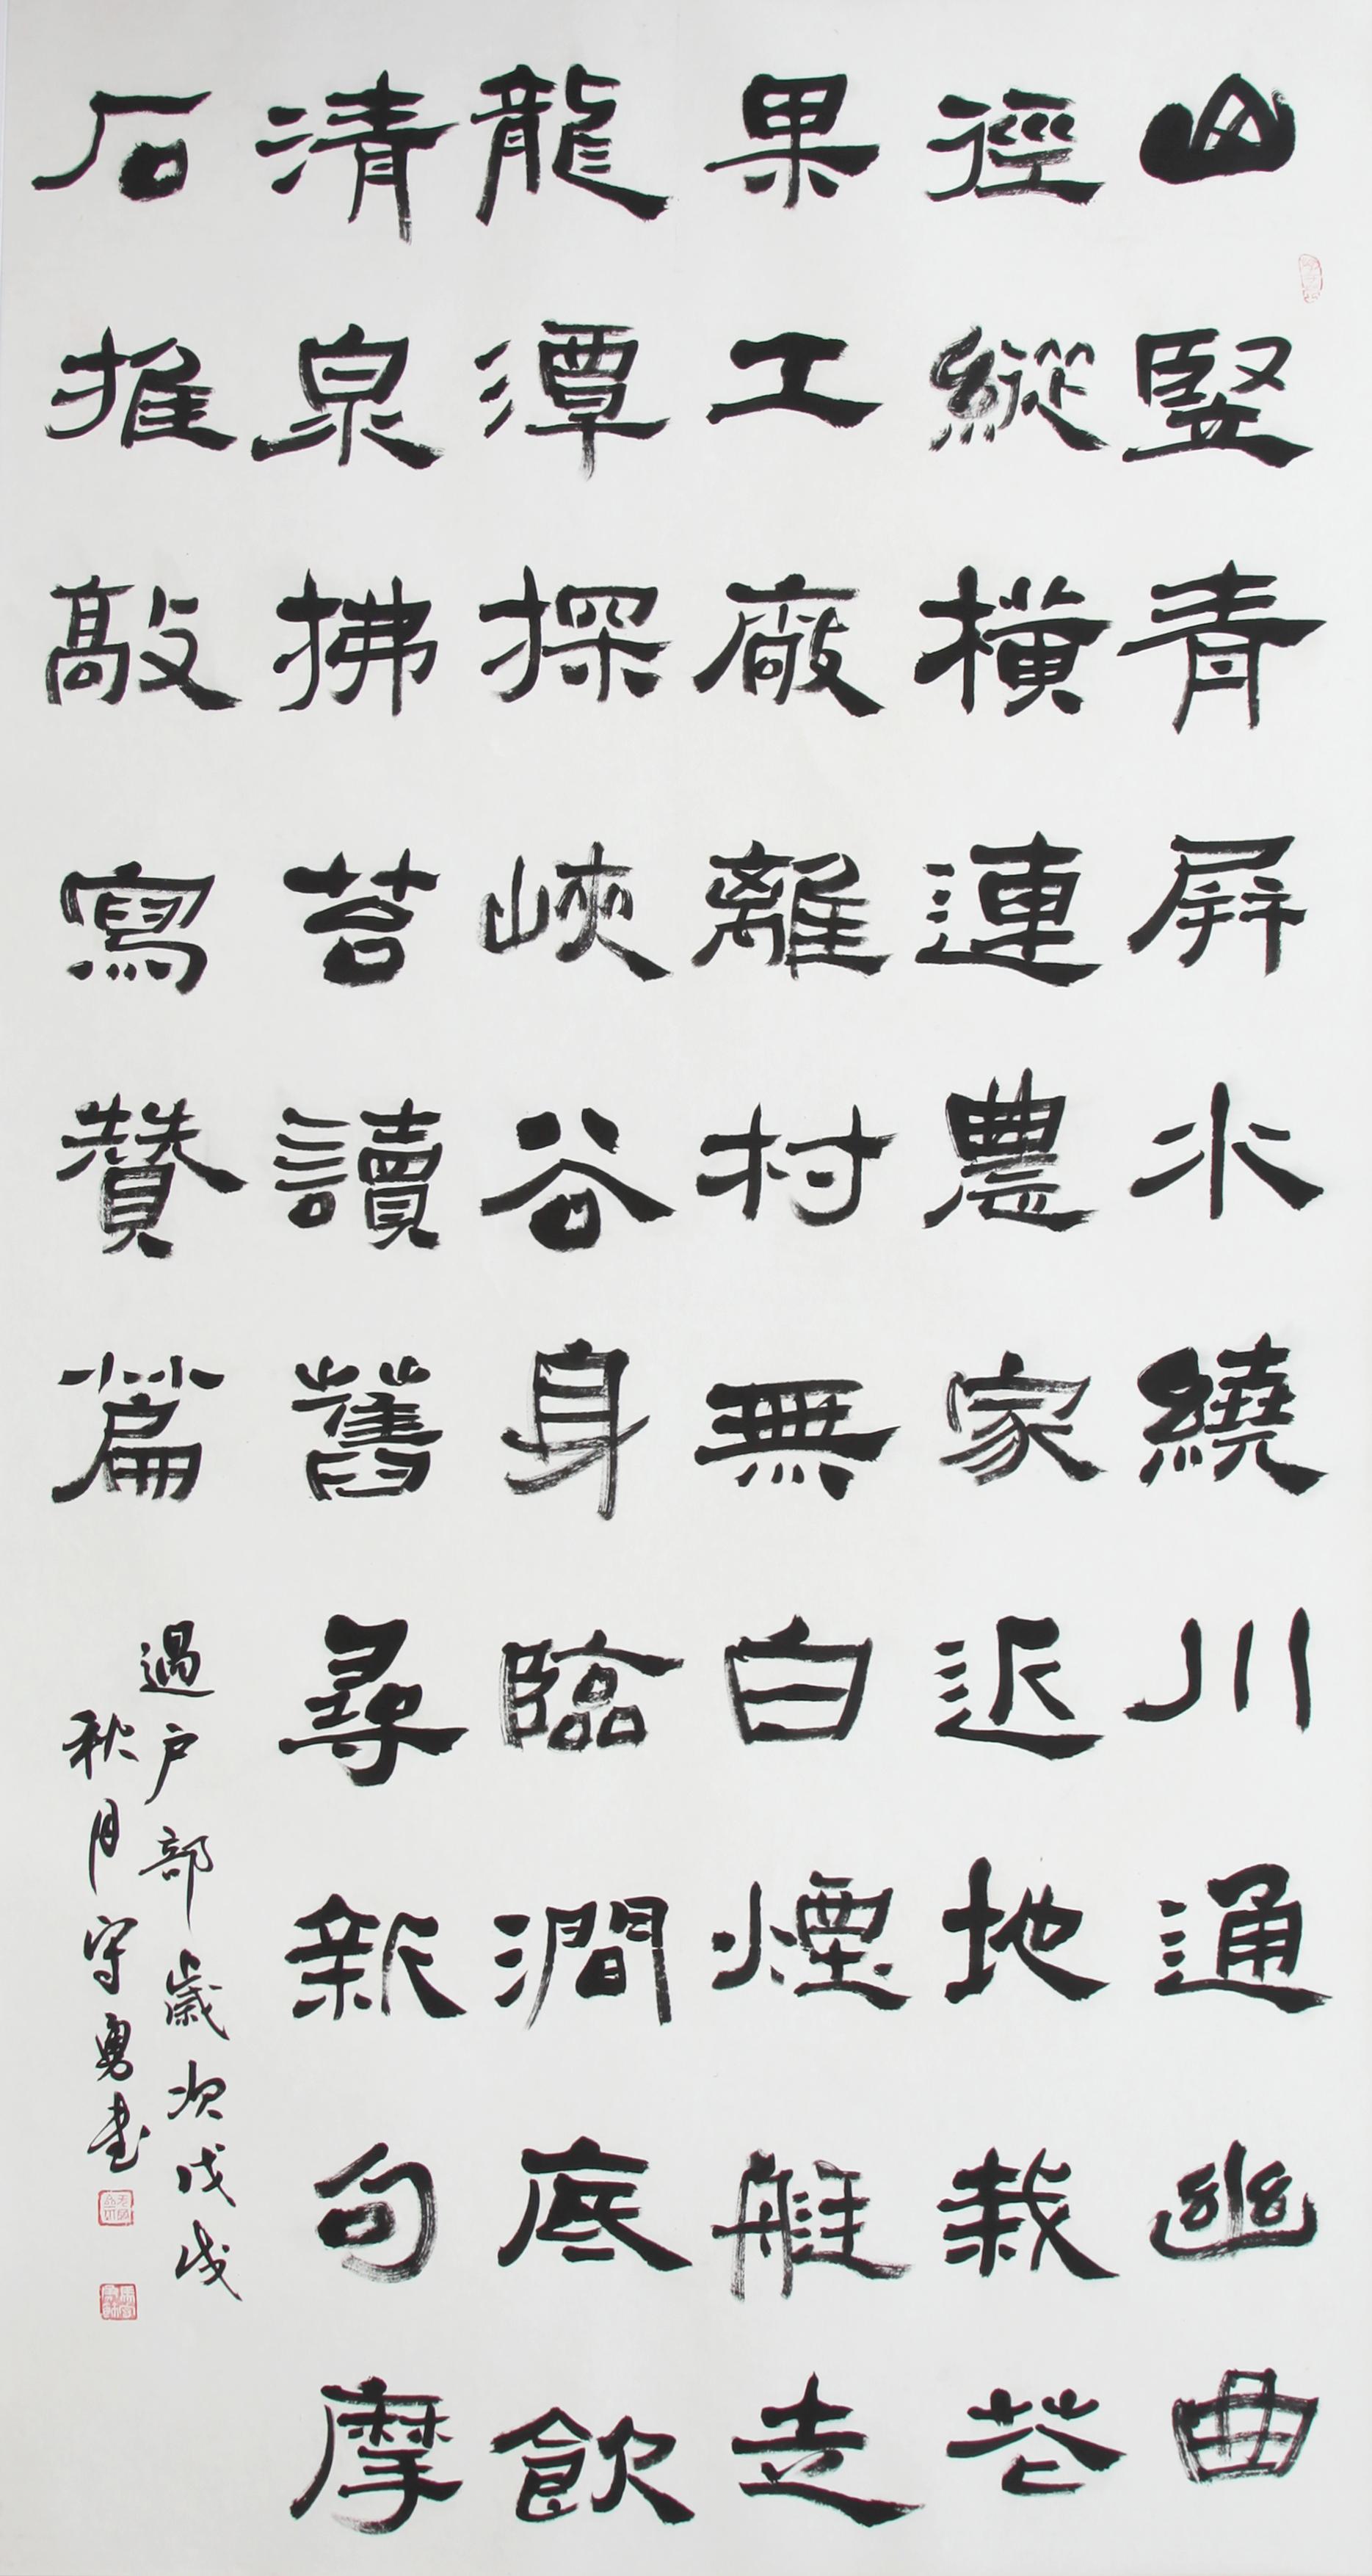 山豎青屏水繞川通幽曲
徑縱橫連農家近地栽花
果工廠離村無白煙艇走
龍潭探峽谷身臨澗底飲
清泉拂苔讀舊尋新句摩
石推敲寫贊篇
過戶部歲次戊戌
秋月守勇書